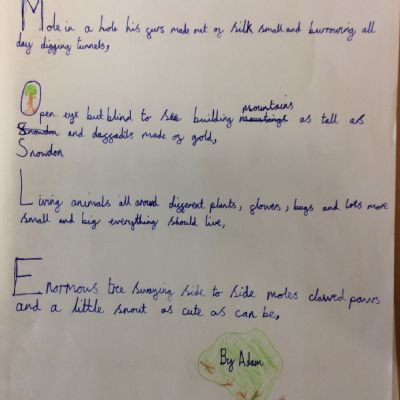 Mole in a hole his gurs made out og silk small and burrowing all
day digging tunnels,
mountains
Open eye but blind to see building mountings as tall as
Snowdon and daggadils made og gold,
Snowdon
Living animals all around diggerent plants, glowers, bugs and lots more
small and big everything should live,
Enormous tree swaying side to side moles clawed paws
and a little snout as cute as can be,
By Adam